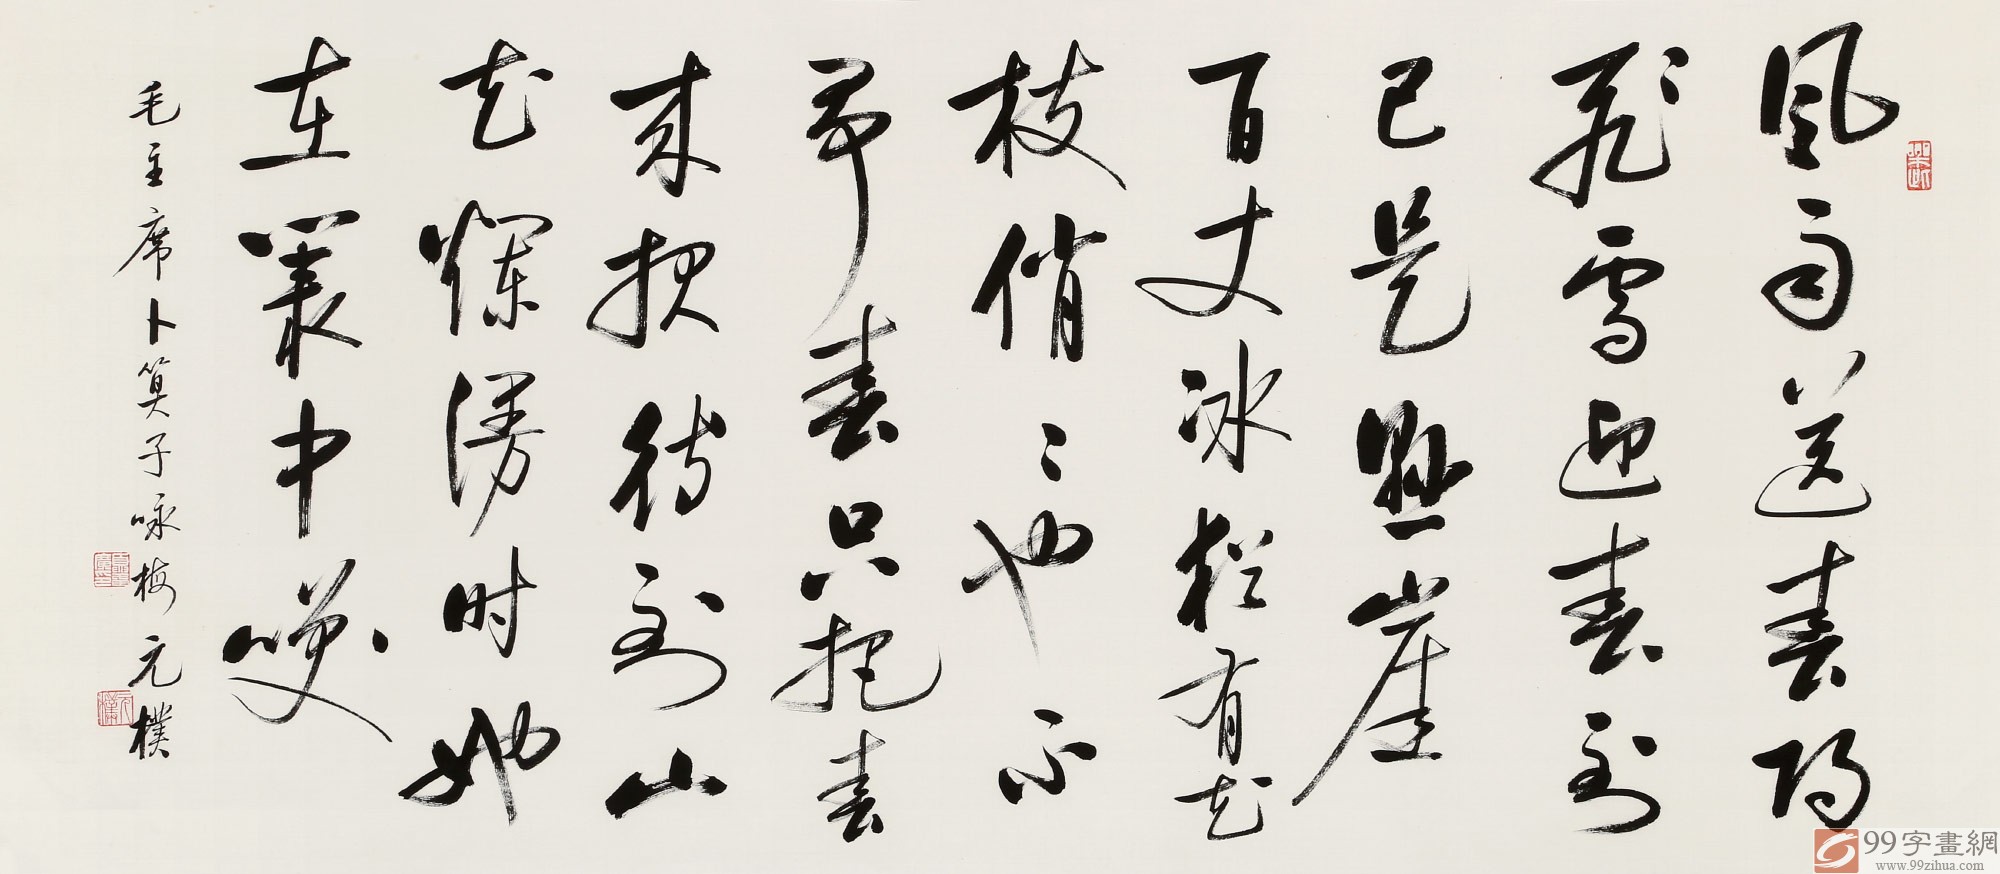 風雨送春歸
飛雪迎春到
已是懸崖
百丈冰猶有花
枝俏〻也不
爭春只把春
来报待到山
花爛漫时她
在叢中咲
毛主席卜算子咏梅 元樸
99字畫網
www.99zihua.com